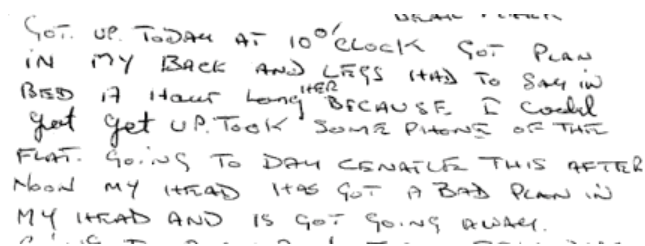 GOT. UP. TODAY AT 10 O'CLOCK GOT PLAN
IN MY BACK AND LEGS HAD TO SAY IN
BED A HOUR LONG HER BECAUSE I COULD
get get UP. TOOK SOME PHONE OF THE
FLAT. GOING TO DAY CENATLE THIS AFTER
NOON MY HEAD HAS GOT A BAD PLAN IN
MY HEAD AND IS GOT GOING AWAY.